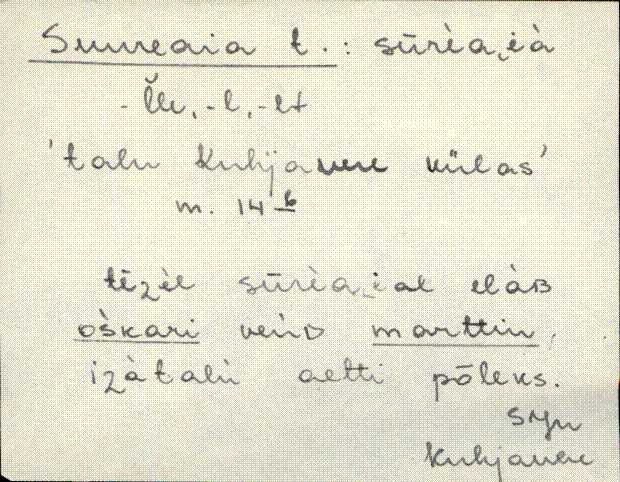 Suureaia t.: sūrèa͜ià
-l̆le, -l, -lt
'talu Kuhjavere külas'
m. 14 b
tēzèl sūrèa͜ial elàʙ
òškari venᴅ marttin,
izàtalù aetti pōleks.
SJn
Kuhjavere